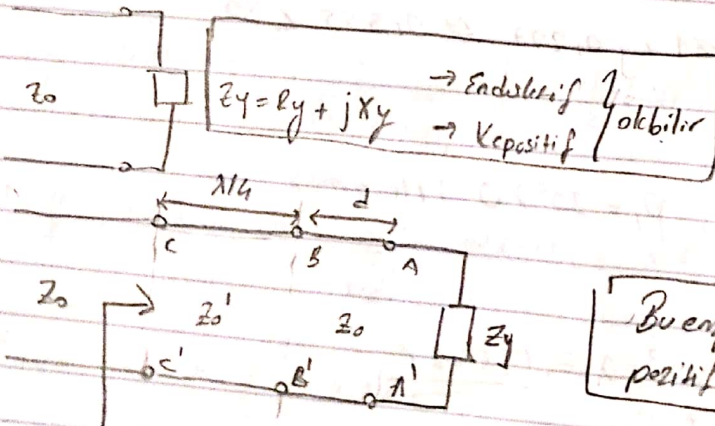 Z₀
Zy = Ry + jXy
→ Endüktif
→ Kapasitif
olabilir
λ/4
d
C
B
A
Z₀
Z₀'
Z₀
Zy
C'
B'
A'
Bu em
pozitif